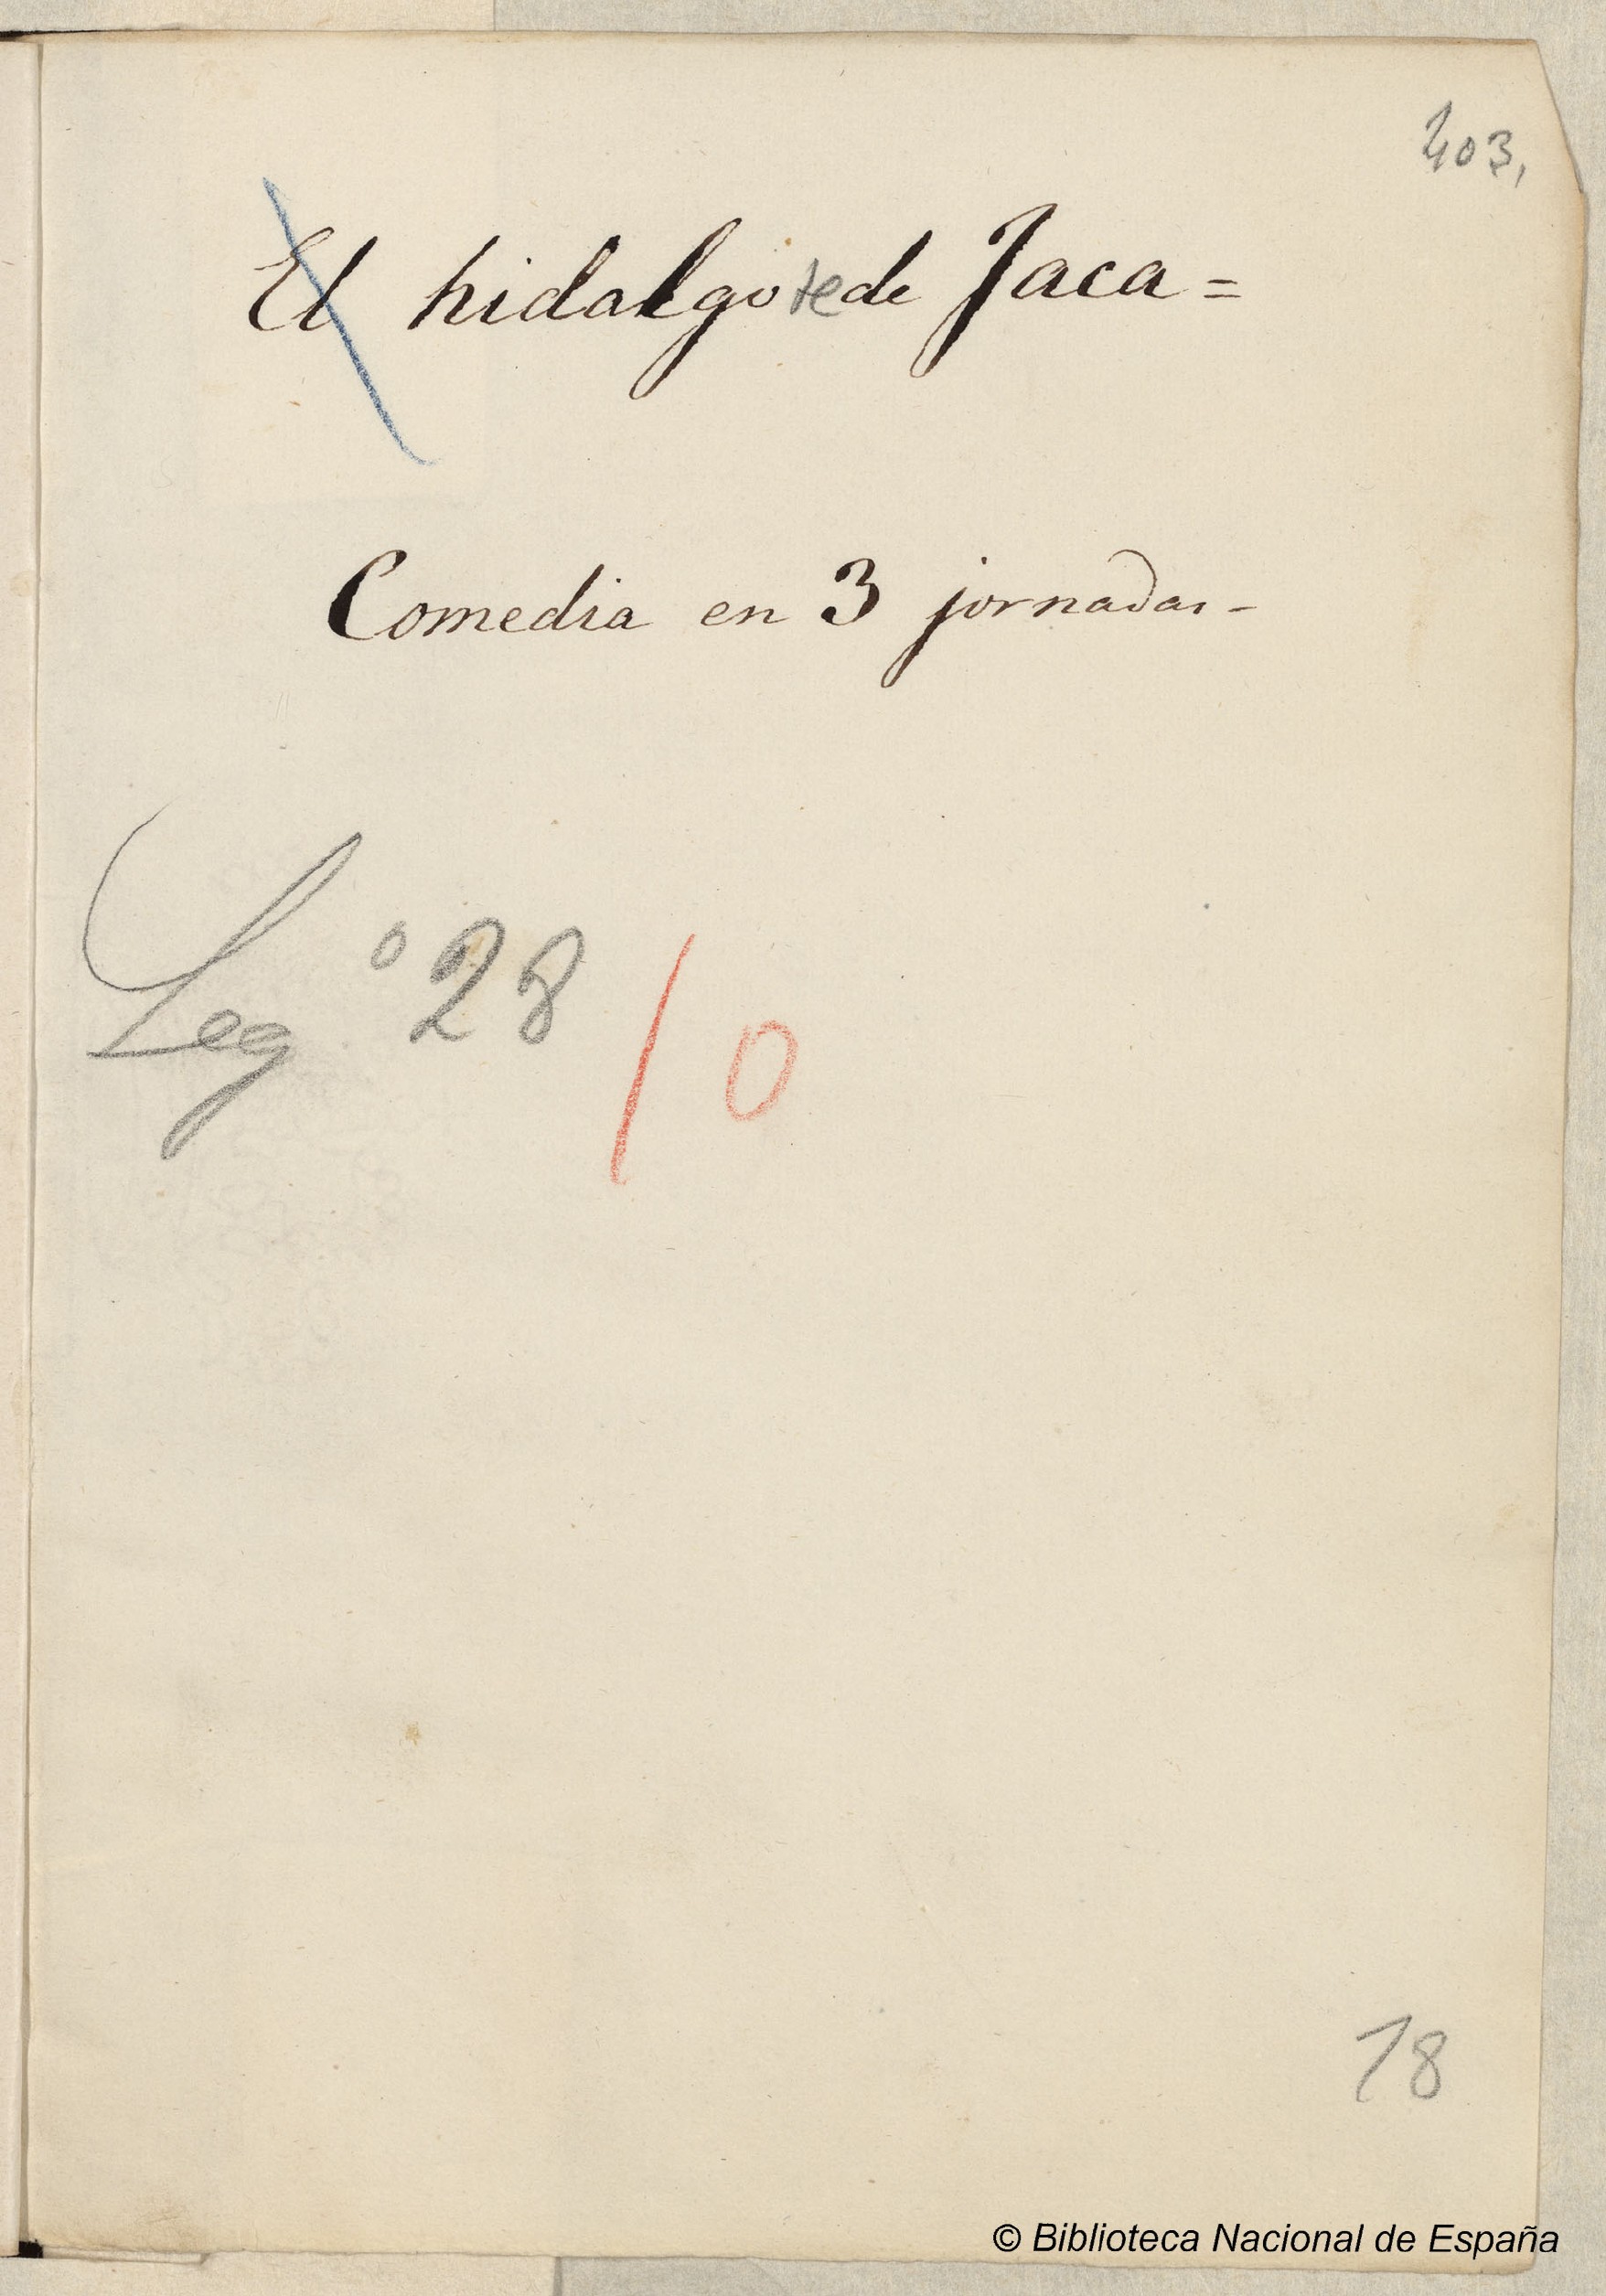 403,
El hidalgo te de Jaca =
Comedia en 3 jornadas -
Leg º 28 / 0
18
© Biblioteca Nacional de España